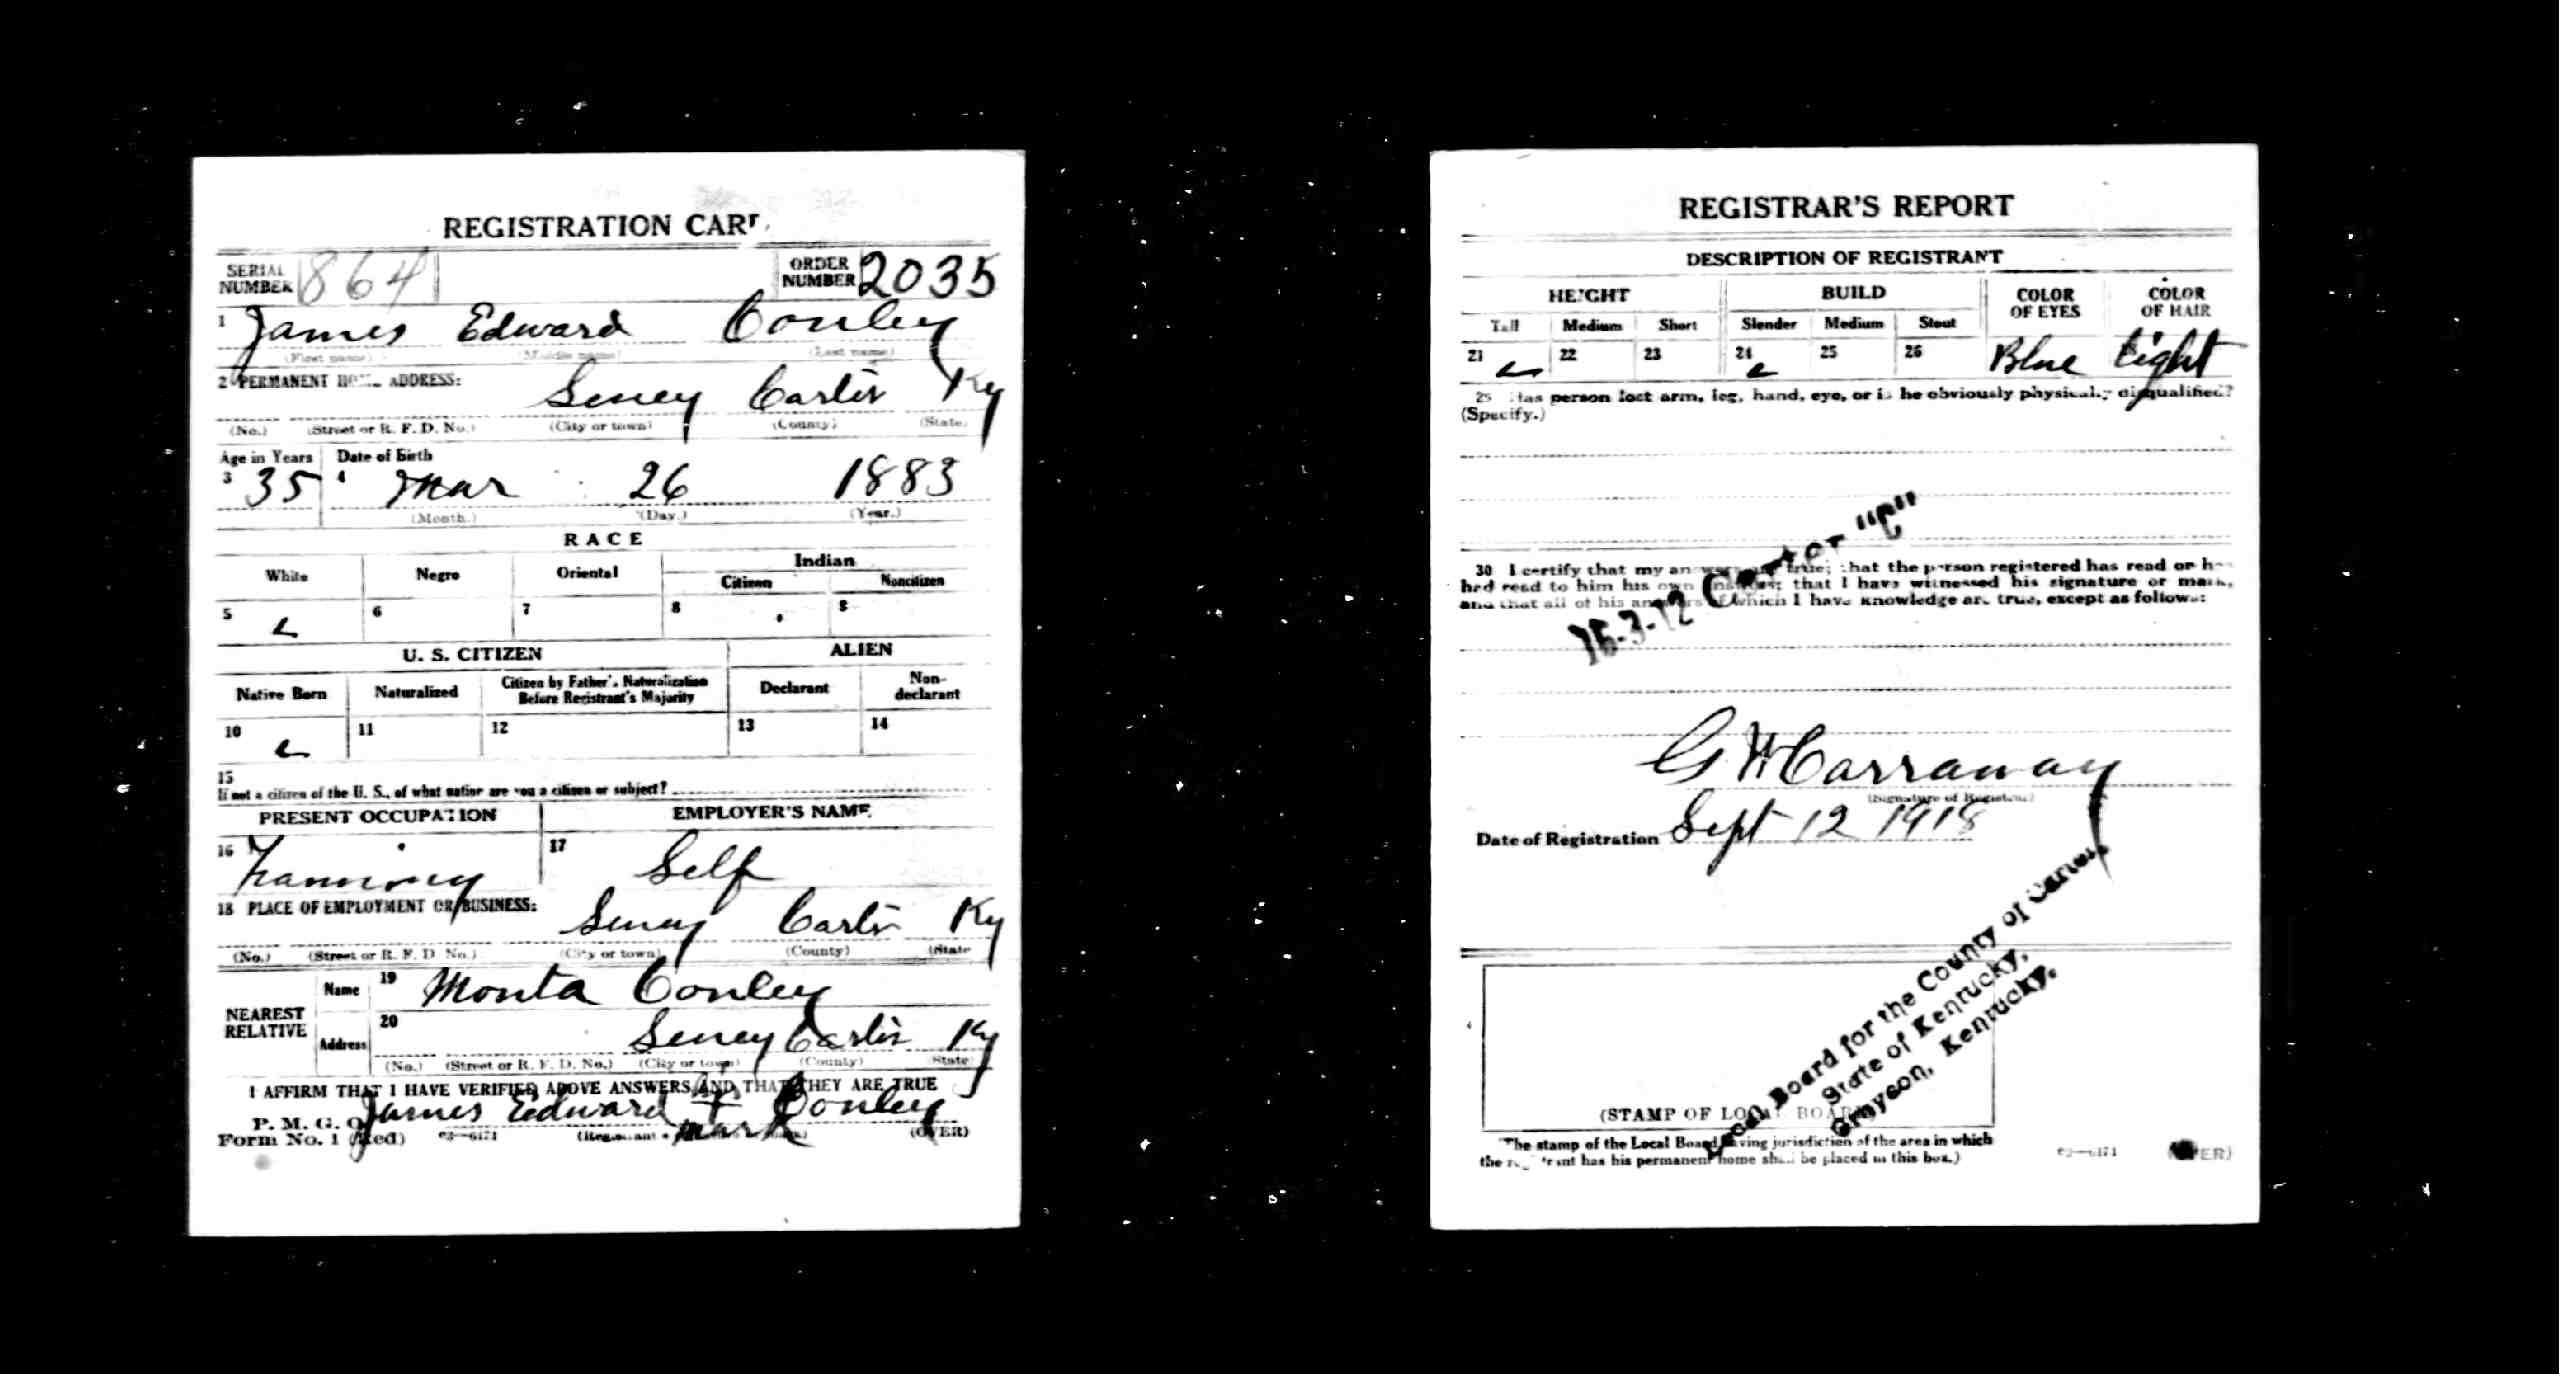 REGISTRATION CAR
SERIAL NUMBER 864 ORDER NUMBER 2035
1 James Edward Conley
(First name) (Middle name) (Last name)
2 PERMANENT HOME ADDRESS:
Seney Carter Ky
(No.) (Street or R. F. D. No.) (City or town) (County) (State)
Age in Years Date of Birth
3 35 4 Mar 26 1883
(Month.) (Day.) (Year.)
RACE
White Negro Oriental Indian
Citizen Noncitizen
5 6 7 8 9
U. S. CITIZEN ALIEN
Native Born Naturalized Citizen by Father's Naturalization Before Registrant's Majority Declarant Non-declarant
10 11 12 13 14
15
If not a citizen of the U. S., of what nation are you a citizen or subject?
PRESENT OCCUPATION EMPLOYER'S NAME
16 Farming 17 Self
18 PLACE OF EMPLOYMENT OR BUSINESS:
Seney Carter Ky
(No.) (Street or R. F. D. No.) (City or town) (County) (State
NEAREST RELATIVE Name 19 Monta Conley
Address 20 Seney Carter Ky
(No.) (Street or R. F. D. No.) (City or town) (County) (State)
I AFFIRM THAT I HAVE VERIFIED ABOVE ANSWERS AND THAT THEY ARE TRUE
his
P. M. G. O. James Edward + Conley
Form No. 1 (Red) 03—6171 mark (OVER)
REGISTRAR'S REPORT
DESCRIPTION OF REGISTRANT
HEIGHT BUILD COLOR OF EYES COLOR OF HAIR
Tall Medium Short Slender Medium Stout
21 22 23 24 25 26 Blue Light
Has person lost arm, leg, hand, eye, or is he obviously physically disqualified?
(Specify.)
16-3-12 Carter "C"
30 I certify that my answers are true; that the person registered has read or has
had read to him his own answers; that I have witnessed his signature or mark,
and that all of his answers of which I have knowledge are true, except as follows:
G W Carraway
(Signature of Registrar)
Date of Registration Sept 12 1918
Local Board for the County of Carter,
State of Kentucky,
Grayson, Kentucky.
(STAMP OF LOCAL BOARD)
(The stamp of the Local Board having jurisdiction of the area in which
the registrant has his permanent home shall be placed in this box.)
03—6171 (OVER)